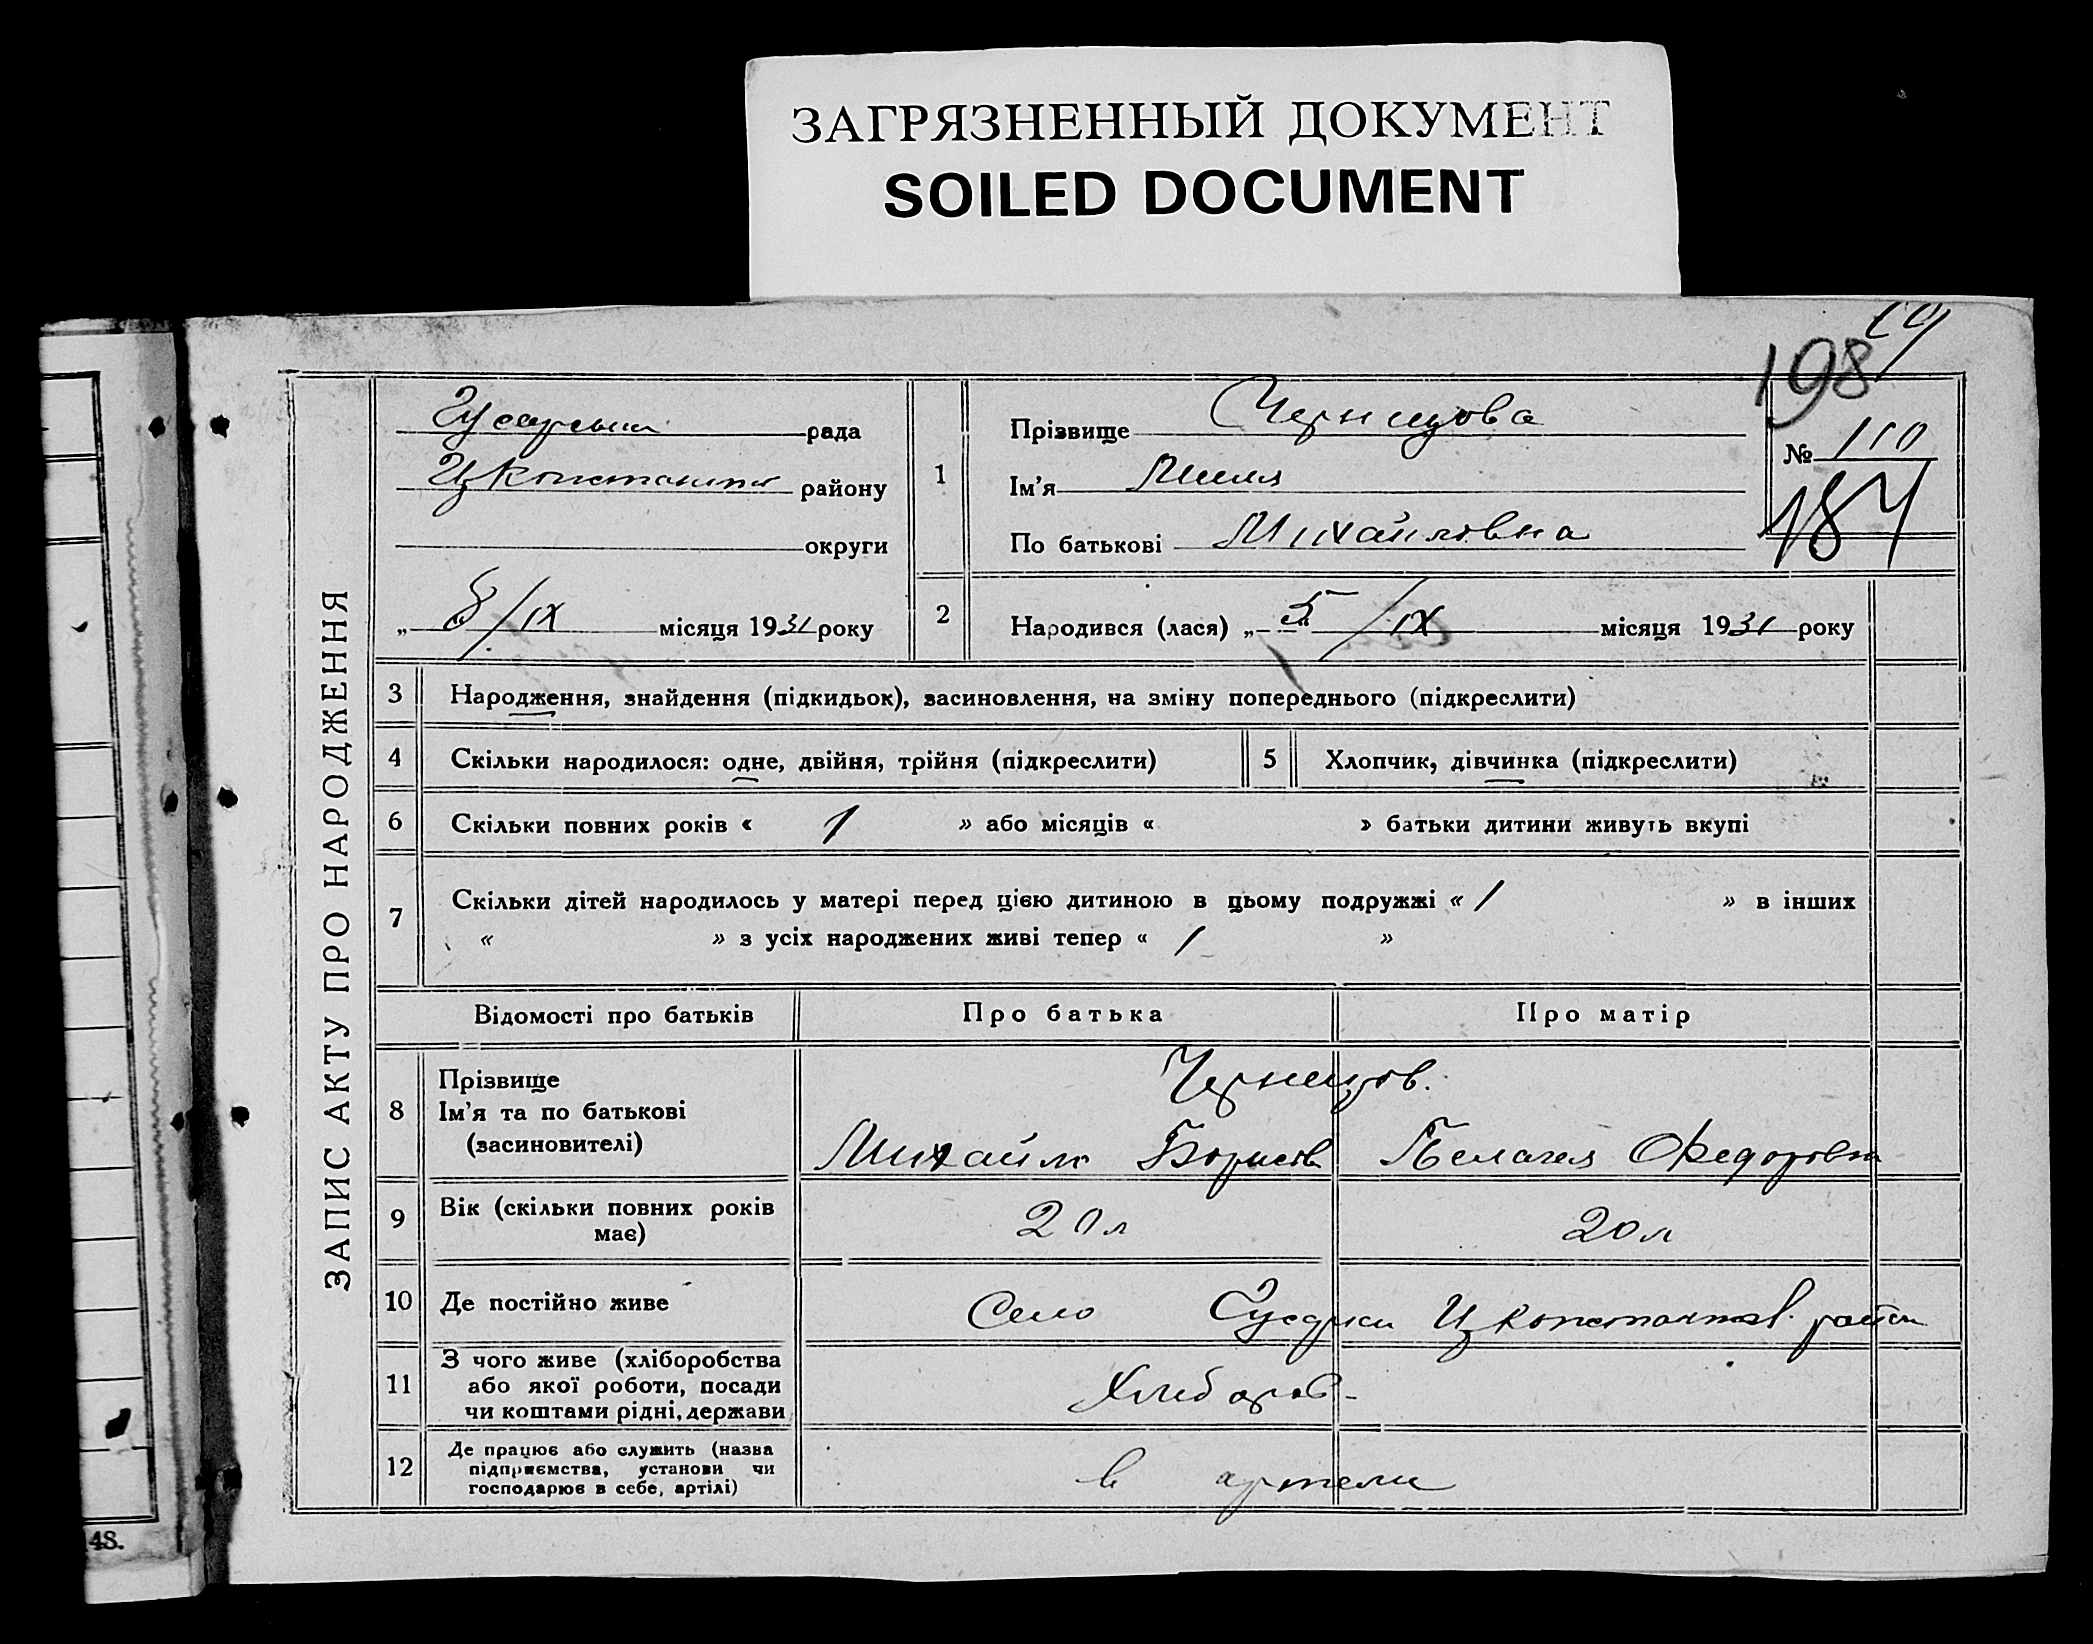 ЗАГРЯЗНЕННЫЙ ДОКУМЕНТ
SOILED DOCUMENT
198
ЗАПИС АКТУ ПРО НАРОДЖЕННЯ
рада
району
округи
„ 8/IX місяця 1931 року
1
Прізвище Чернецова
Ім'я
По батькові Михайловна
№ 110
184
2
Народився (лася) „ 5/IX місяця 1931 року
3 Народження, знайдення (підкидьок), засиновлення, на зміну попереднього (підкреслити)
4 Скільки народилося: одне, двійня, трійня (підкреслити)
5 Хлопчик, дівчинка (підкреслити)
6 Скільки повних років « 1 » або місяців « » батьки дитини живуть вкупі
7 Скільки дітей народилось у матері перед цією дитиною в цьому подружжі « 1 » в інших
« » з усіх народжених живі тепер « 1 »
Відомості про батьків Про батька Про матір
8 Прізвище
Ім'я та по батькові
(засиновителі)
Чернецов.
Михайло Борисов Пелагея Федоровна
9 Вік (скільки повних років
має)
20 л 20 л
10 Де постійно живе Село
11 З чого живе (хліборобства
або якої роботи, посади
чи коштами рідні, держави
Хлебороб-
12 Де працює або служить (назва
підприємства, установи чи
господарює в себе, артілі)
в артели
48.